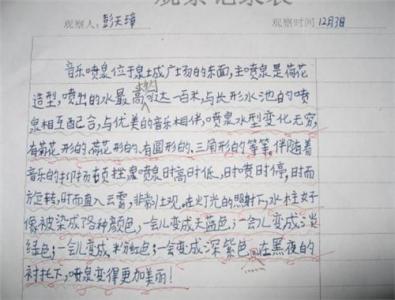 观察记录表
观察人：彭天璋 观察时间 12月3日
音乐喷泉位于泉城广场的东面，主喷泉是荷花
造型，喷出的水最高可达一百米，与长形水池的喷
泉相互配合，与优美的音乐相伴，喷泉水型变化无穷，
有菊花形的、荷花形的、有圆形的、三角形的等等。伴随着
音乐的抑扬顿挫喷泉时高时低，时喷时停，时而
旋转，时而直入云霄，非常壮观，在灯光的照射下，水柱好
像被染成了各种颜色，一会儿变成天蓝色；一会儿变成淡
绿色；一会儿变成 红色；一会变成深紫色，在黑夜的
衬托下，喷泉变得更加美丽！